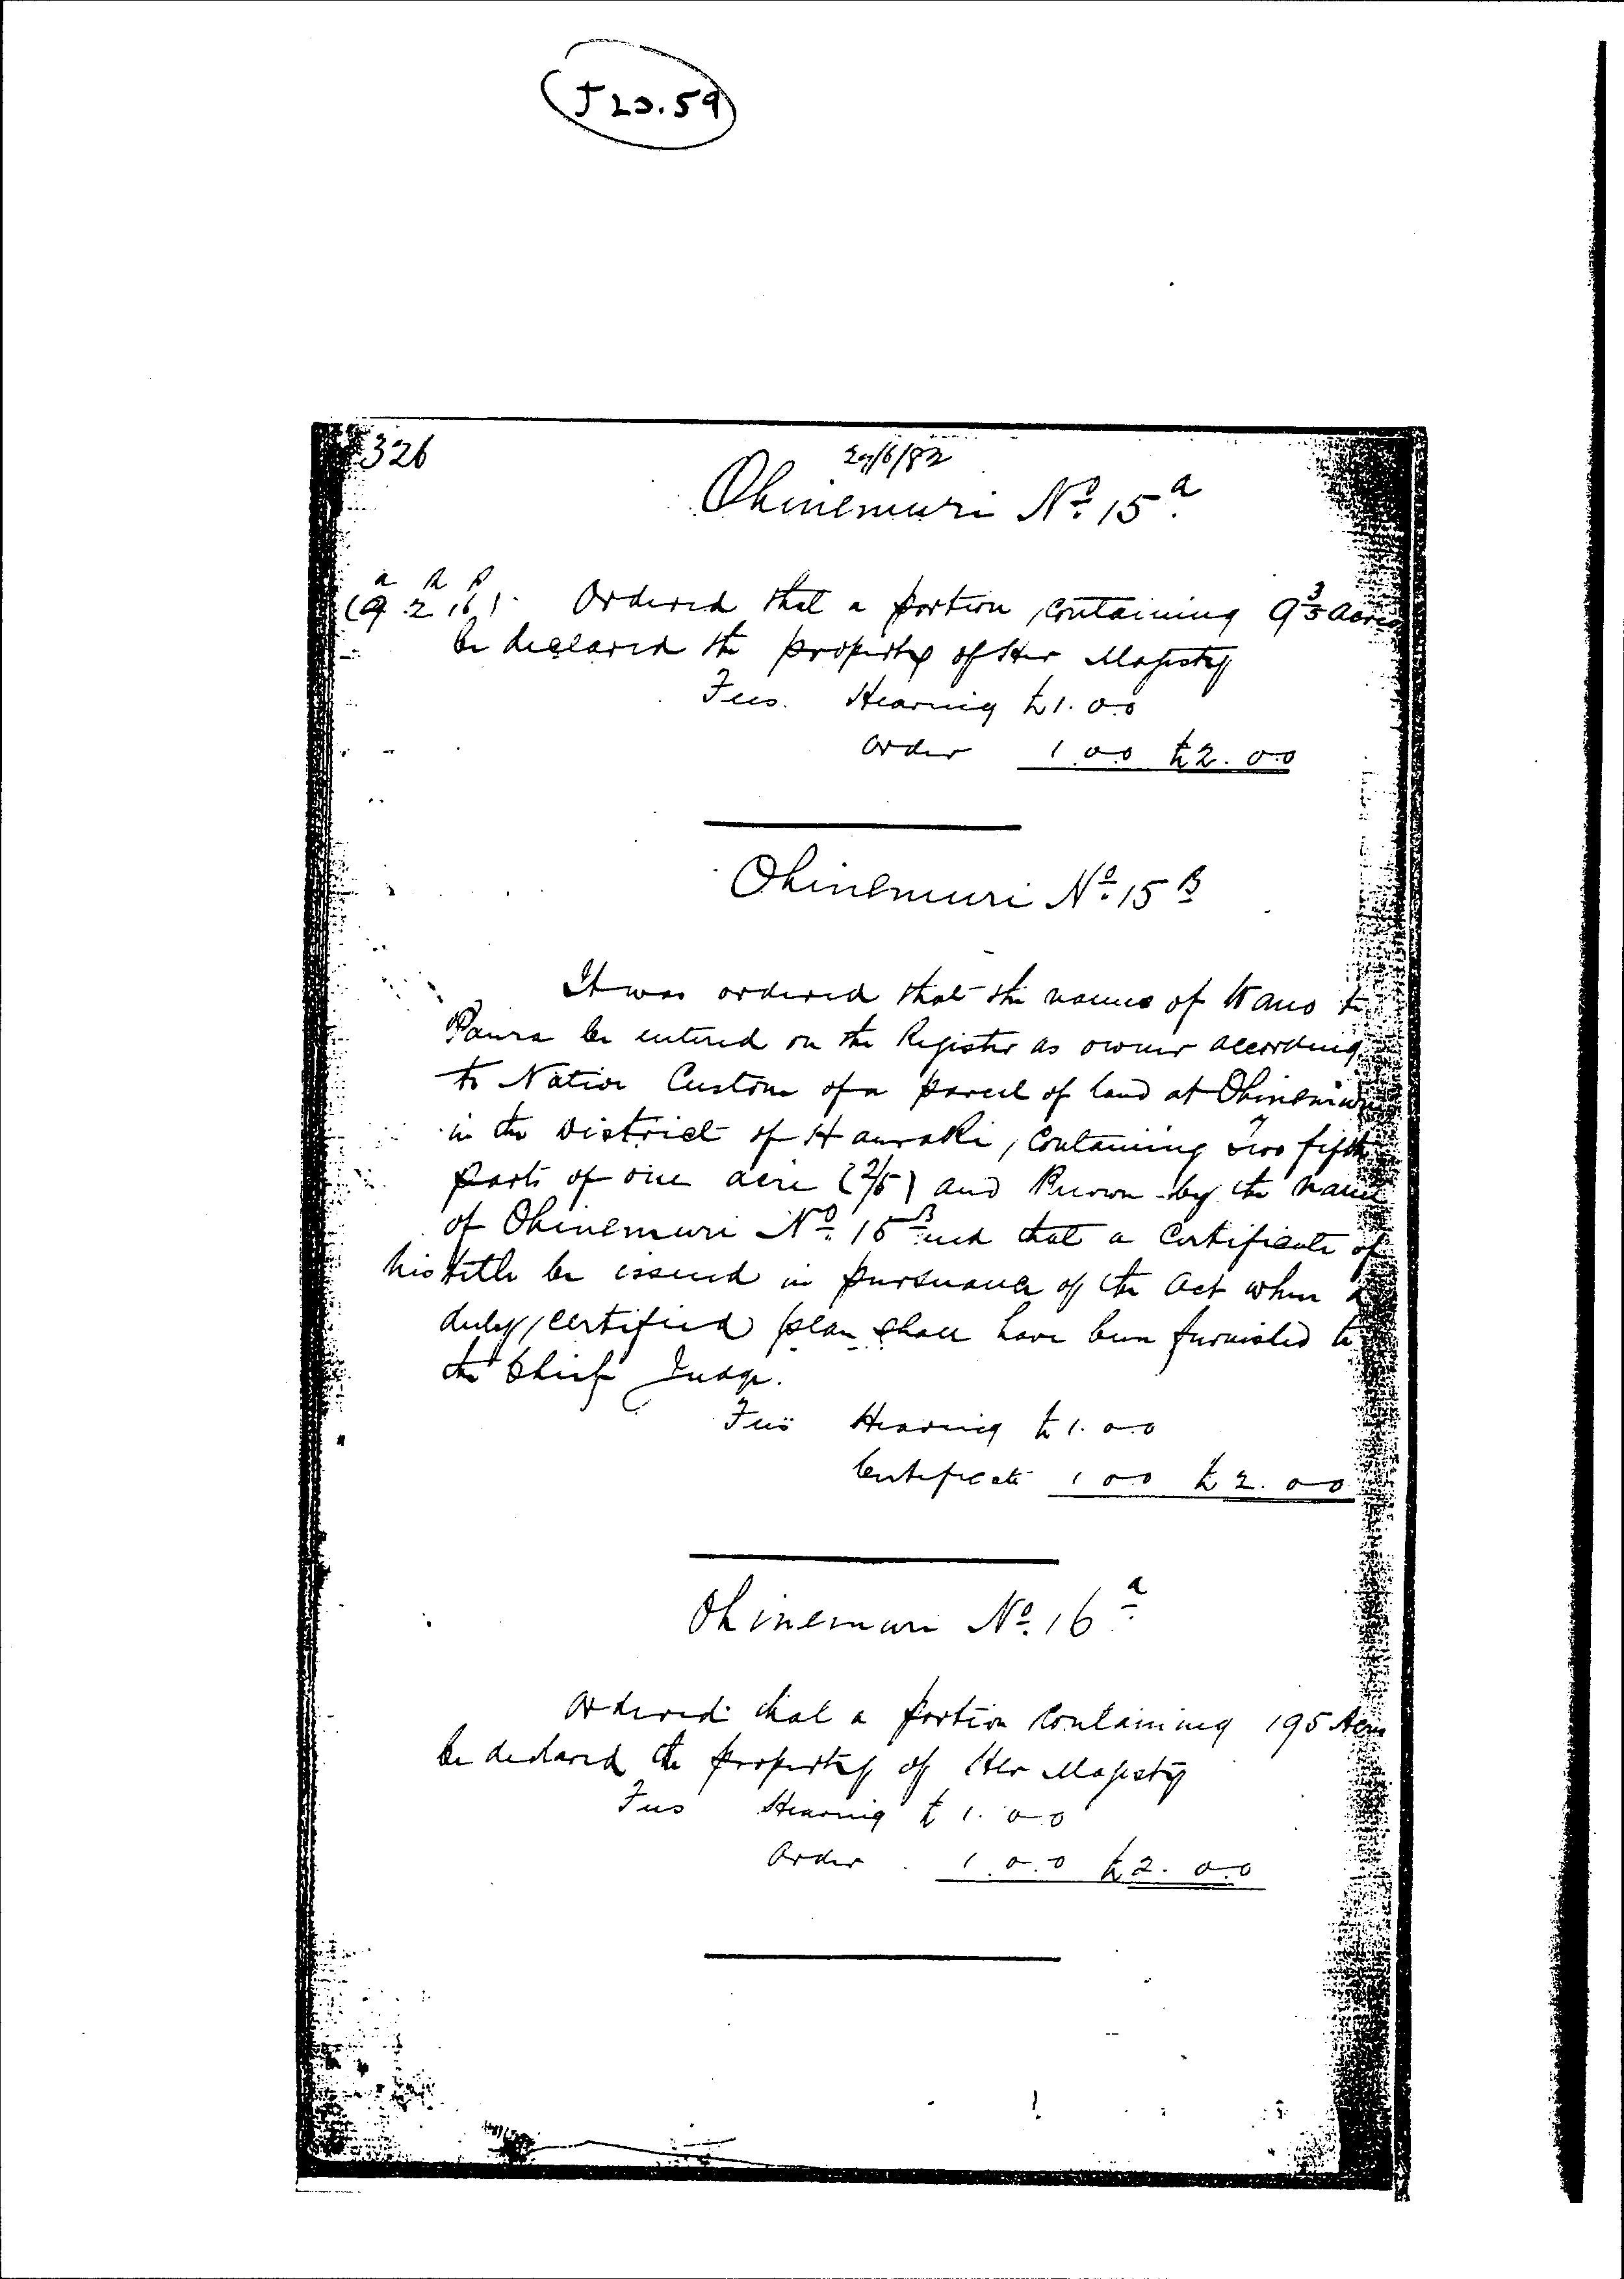 J20.59
326
29/6/82
Ohinemuri No. 15a
a R P
(9 2 16) Ordered that a portion containing 9 3/5 Acres
be declared the property of Her Majesty
Fees. Hearing £1.0.0
Order 1.0.0 £2.0.0
Ohinemuri No. 15B
It was ordered that the names of Wano te
be entered on the Register as owner according
to Native Custom of a parcel of land at Ohinemuri
in the District of Hauraki, containing two fifth
parts of one acre (2/5) and known by the name
of Ohinemuri No. 15B and that a Certificate of
his title be issued in pursuance of the Act when a
duly certified plan shall have been furnished to
the Chief Judge.
Fees Hearing £1.0.0
Certificate 1 0 0 £2.0.0
Ohinemuri No. 16a
Ordered that a portion containing 195 Acres
be declared the property of Her Majesty
Fees Hearing £1.0.0
Order 1.0.0 £2.0.0